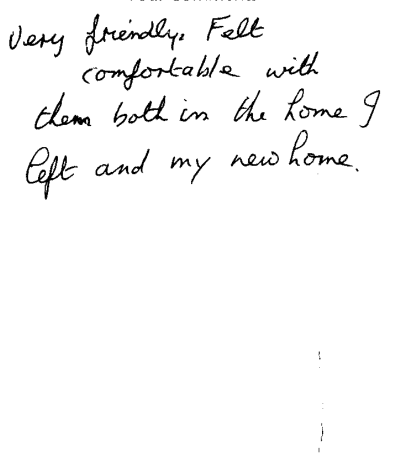 Very friendly. Felt
comfortable with
them both in the home I
left and my new home.